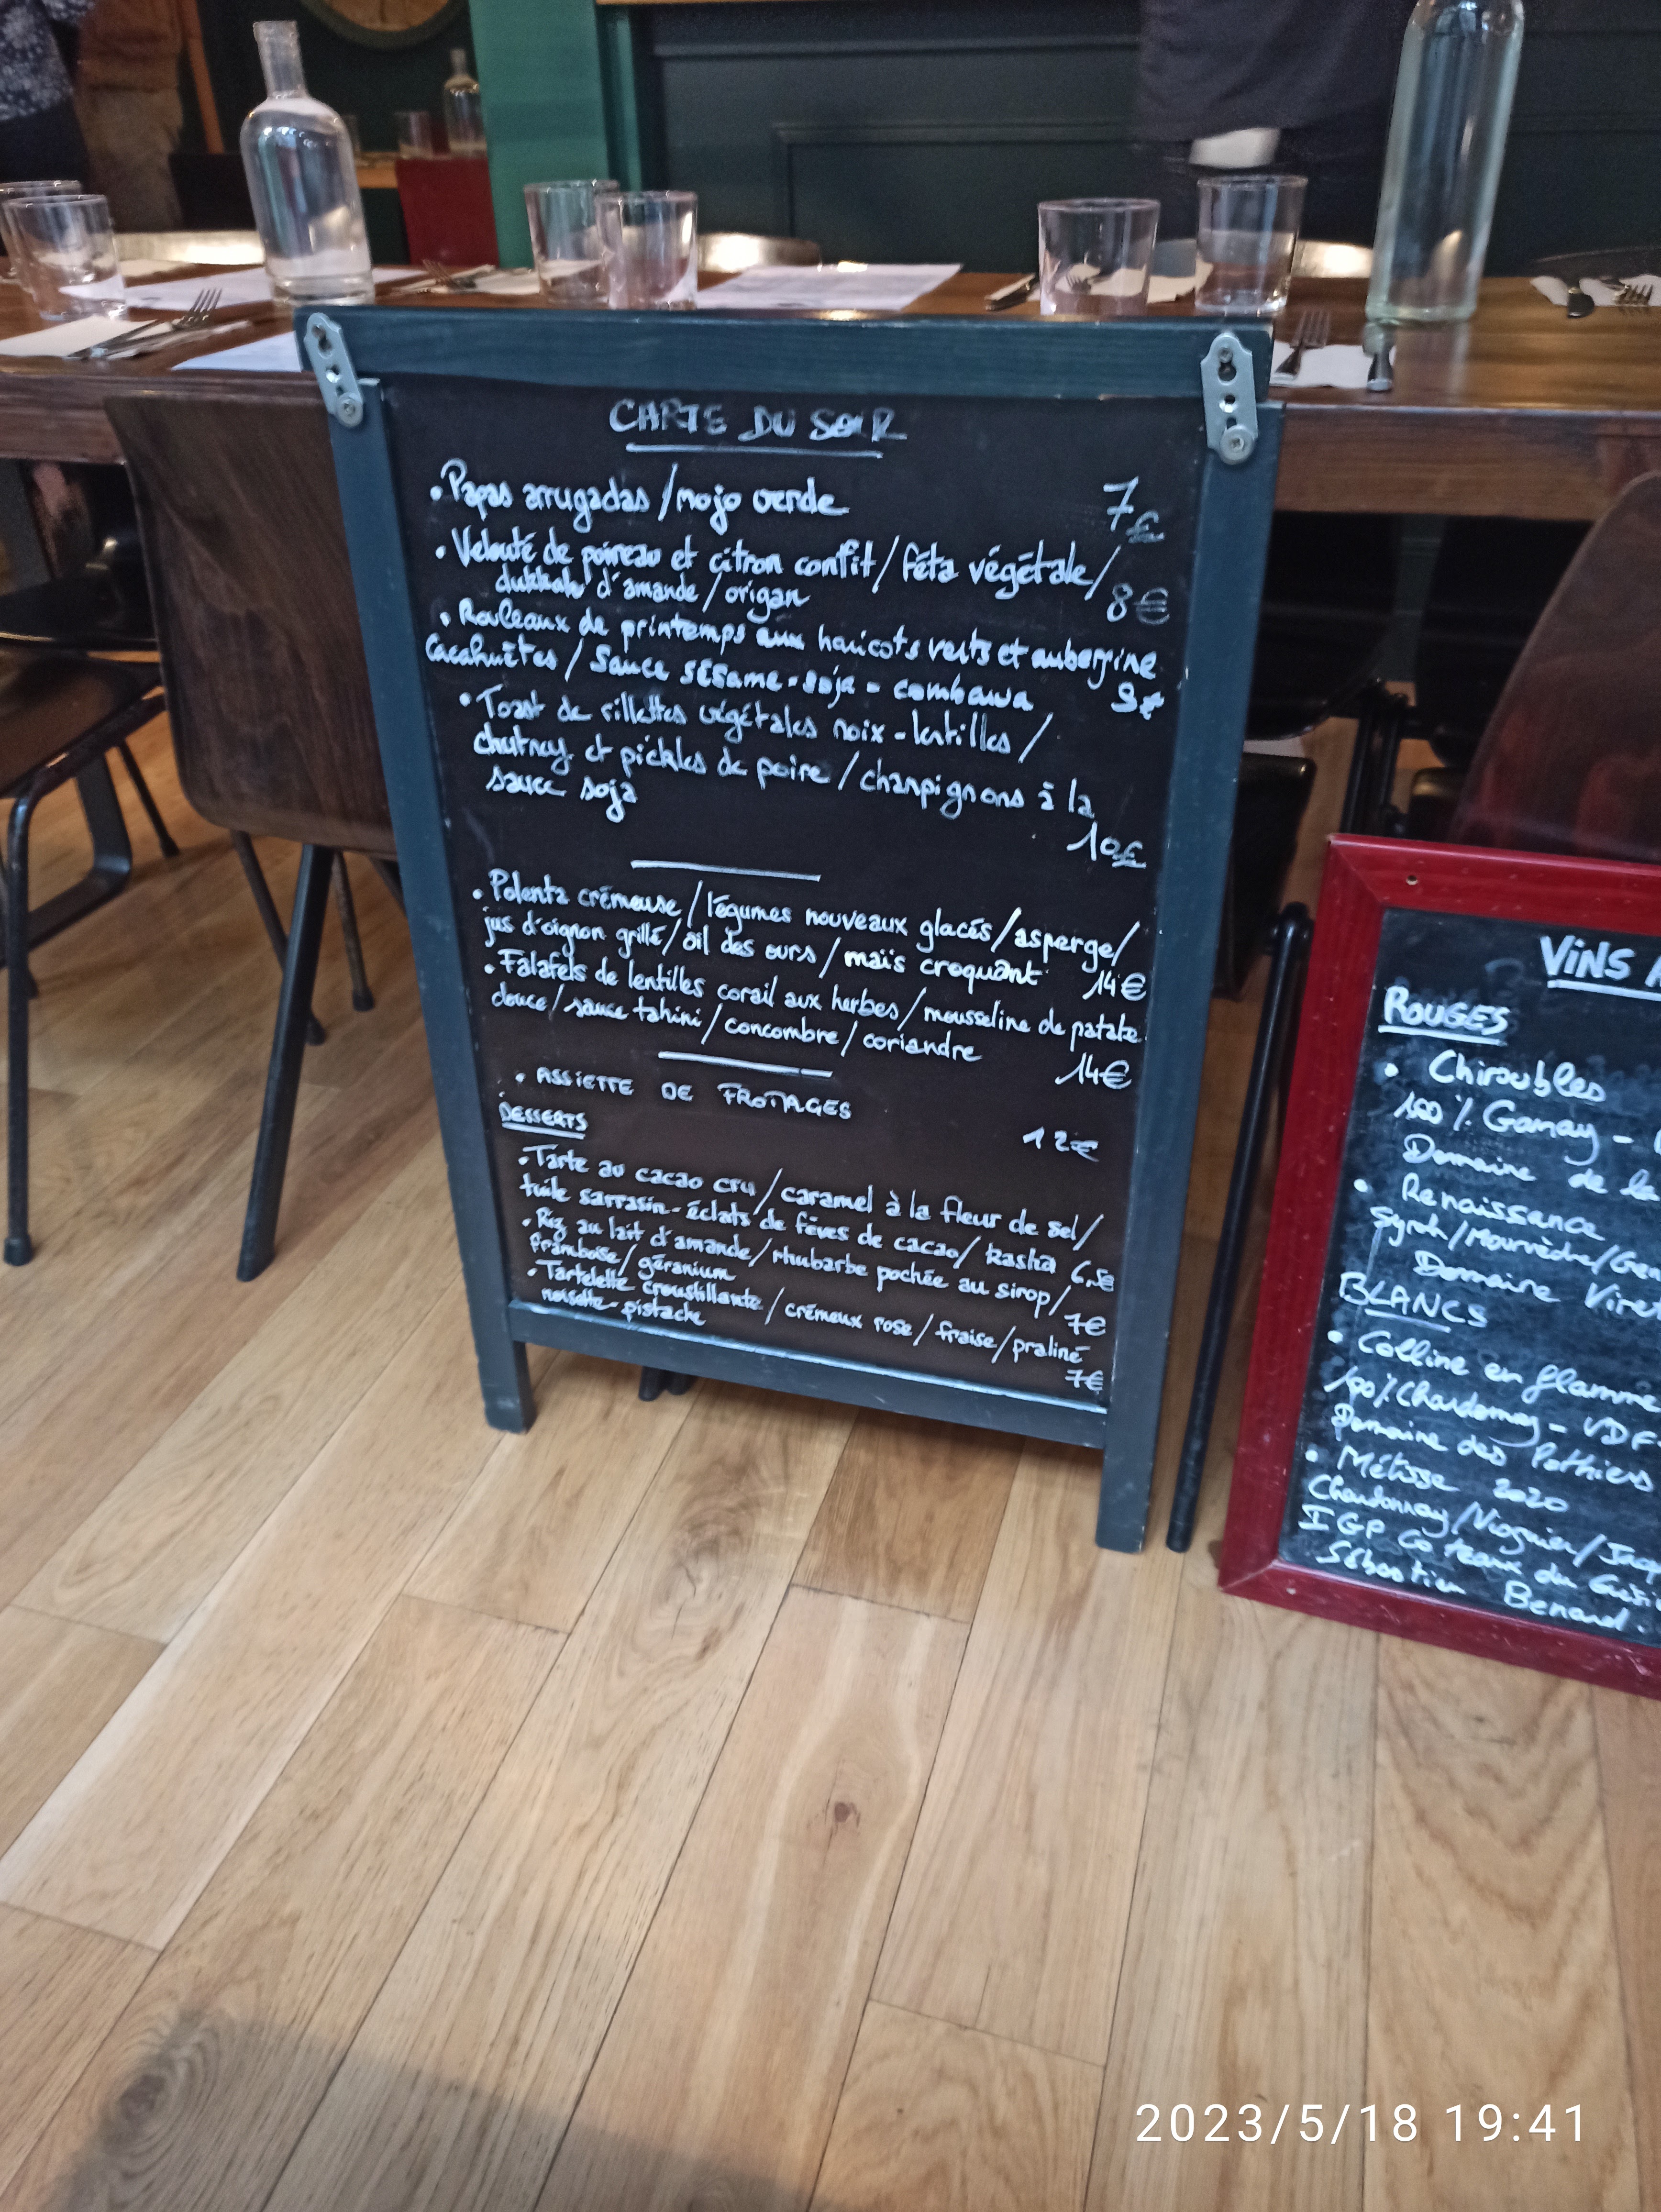 CARTE DU SOIR
• Papas arrugadas / mojo verde 7€
• Velouté de poireau et citron confit / féta végétale /
dukkah d'amande / origan 8€
• Rouleaux de printemps aux haricots verts et aubergine
Cacahuètes / Sauce sésame-soja-combawa 9€
• Toast de rillettes végétales noix-lentilles /
chutney et pickles de poire / champignons à la
sauce soja
10€
• Polenta crémeuse / légumes nouveaux glacés / asperge /
jus d'oignon grillé / ail des ours / maïs croquant 14€
• Falafels de lentilles corail aux herbes / mousseline de patate
douce / sauce tahini / concombre / coriandre 14€
• ASSIETTE DE FROMAGES
12€
DESSERTS
• Tarte au cacao cru / caramel à la fleur de sel /
tuile sarrasin-éclats de fèves de cacao / kasha 6,5€
• Riz au lait d'amande / rhubarbe pochée au sirop /
framboise / géranium 7€
• Tartelette croustillante / crémeux rose / fraise / praliné
noisette-pistache 7€
VINS
ROUGES
• Chiroubles
100% Gamay -
Domaine de la
• Renaissance
Syrah/Mourvèdre/
Domaine
BLANCS
• Colline en flamme
100% Chardonnay - VDF
Domaine des Pothiers
• Métisse 2020
Chardonnay/Viognier/
IGP Coteaux du
Sébastien Benard.
2023/5/18 19:41